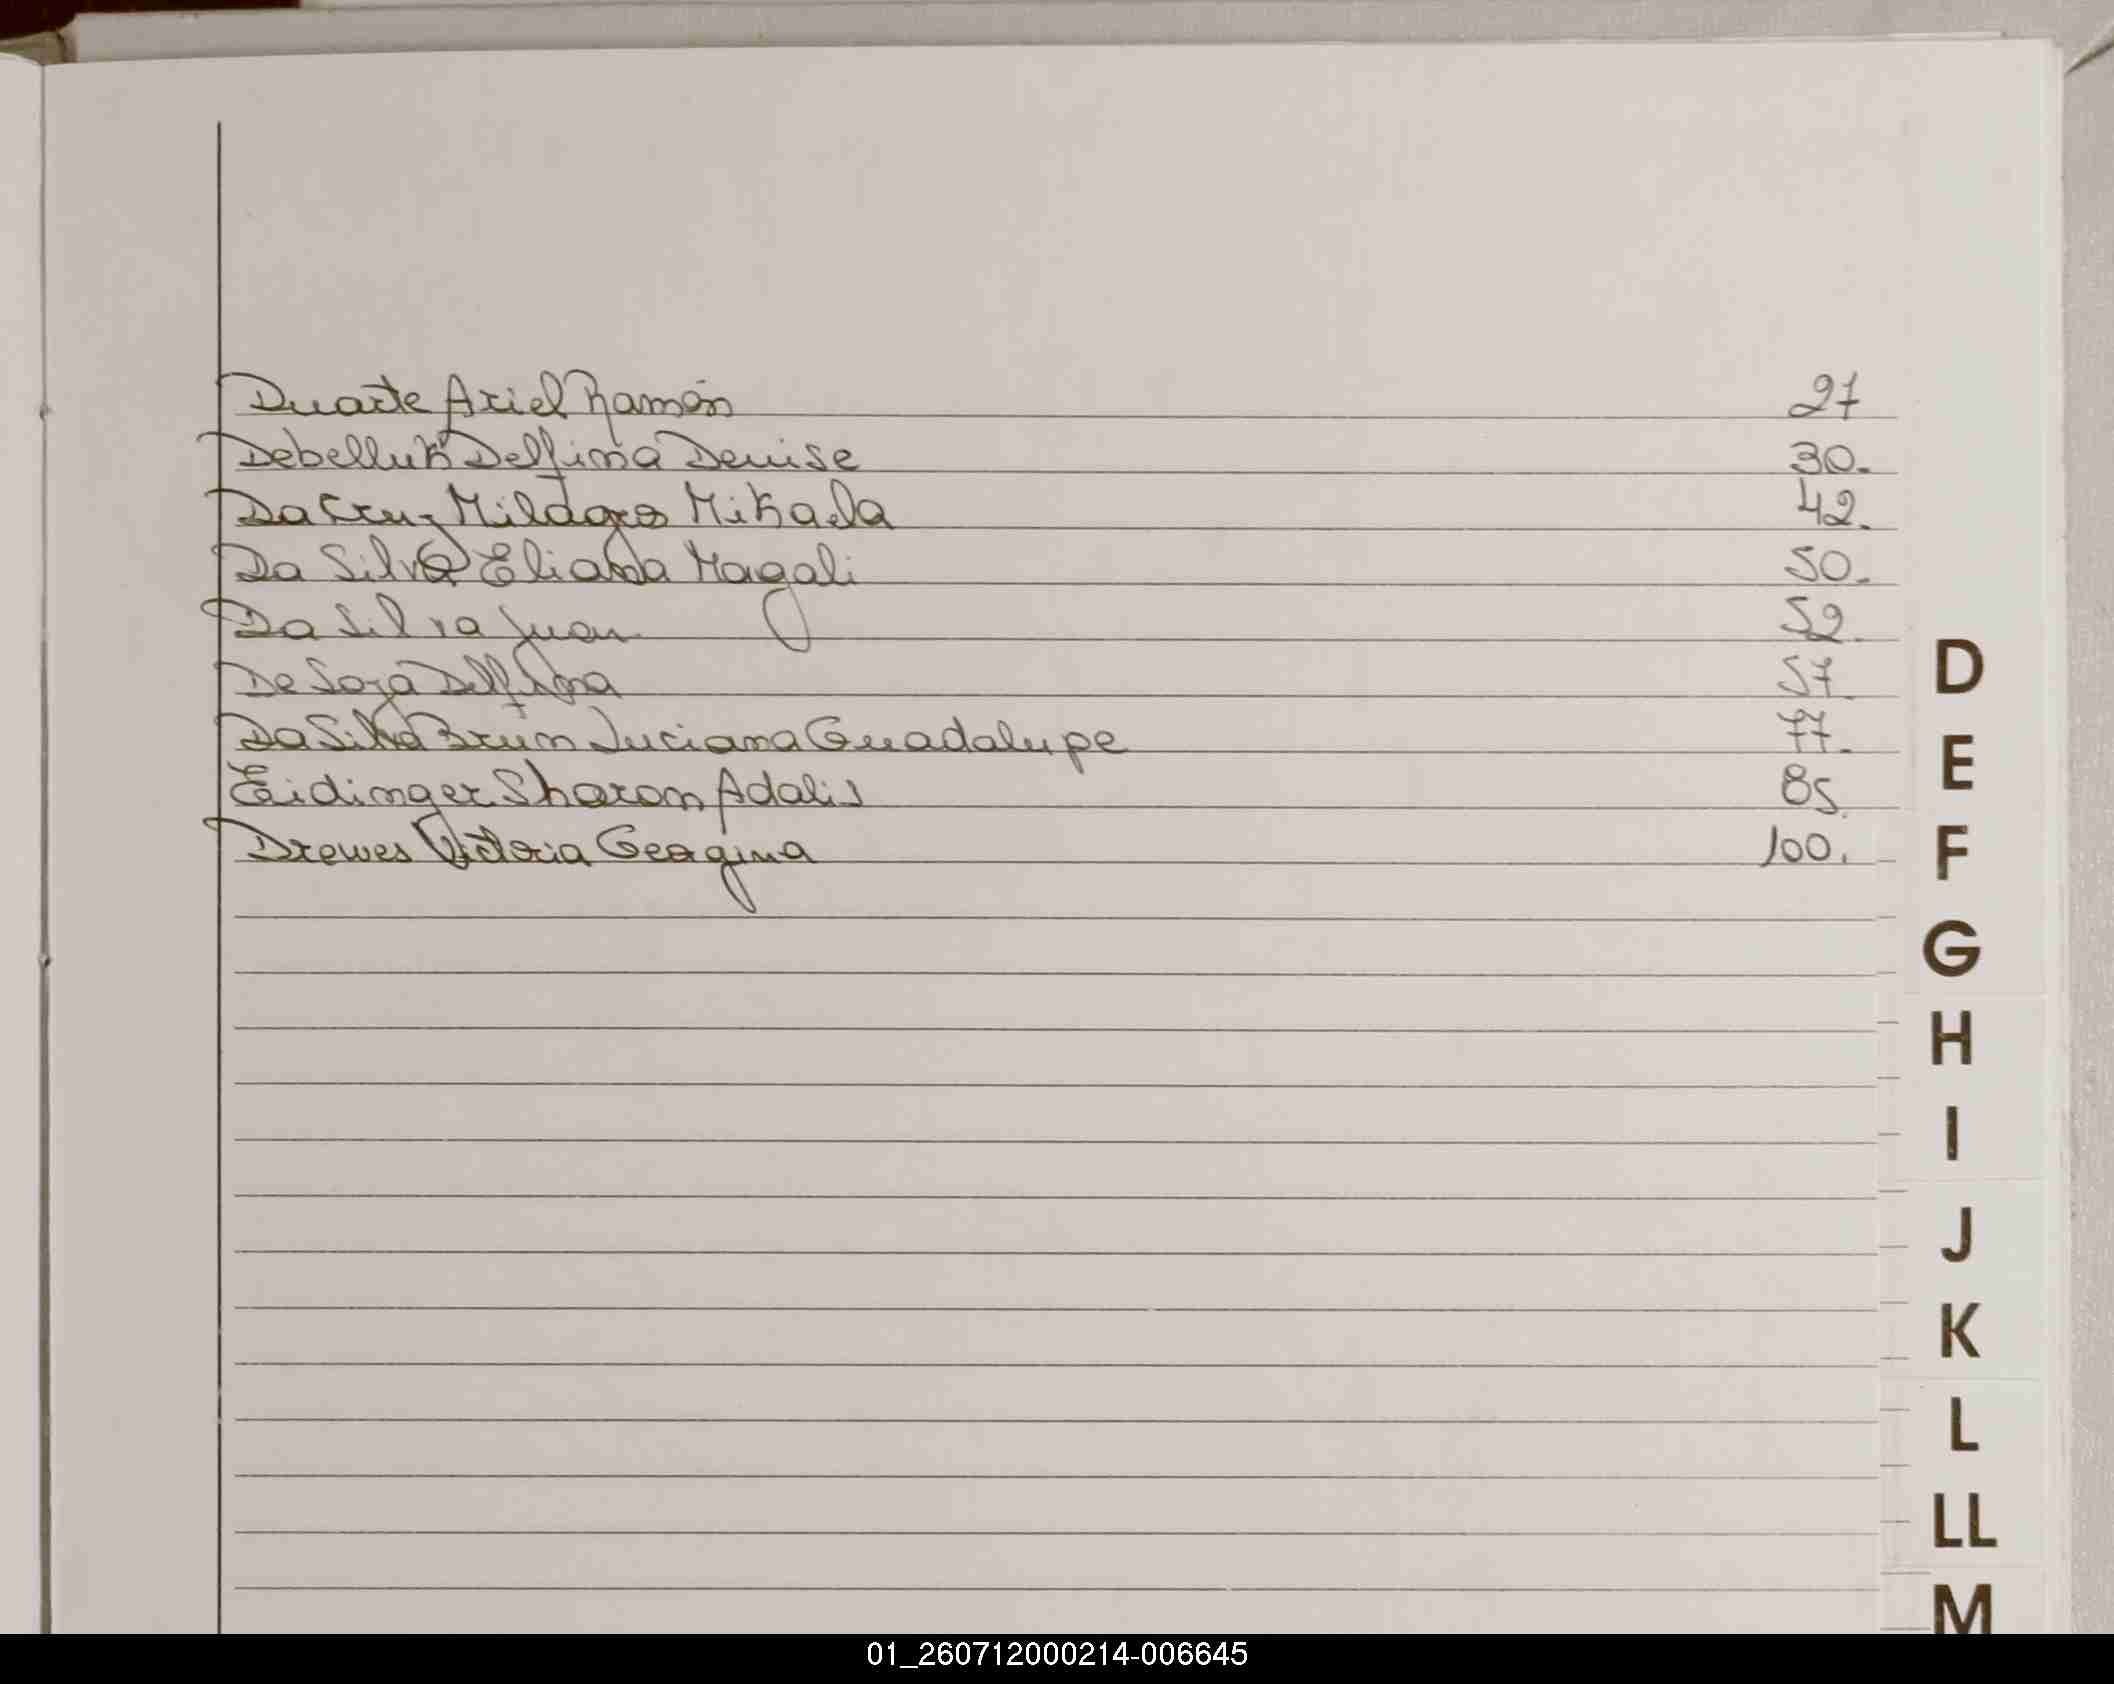 Duarte Ariel Ramón 27
Debelluk Delfina Denise 30.
Da Cruz Milagros Mikaela 42.
Da Silva Eliana Magali 50.
Da Silva Juan 52.
De Soza Delfina 57.
Da Silva Brum Luciana Guadalupe 77.
Eidinger Sharon Adalis 85.
Drewes Victoria Georgina 100.
D
E
F
G
H
I
J
K
L
LL
M
01_260712000214-006645